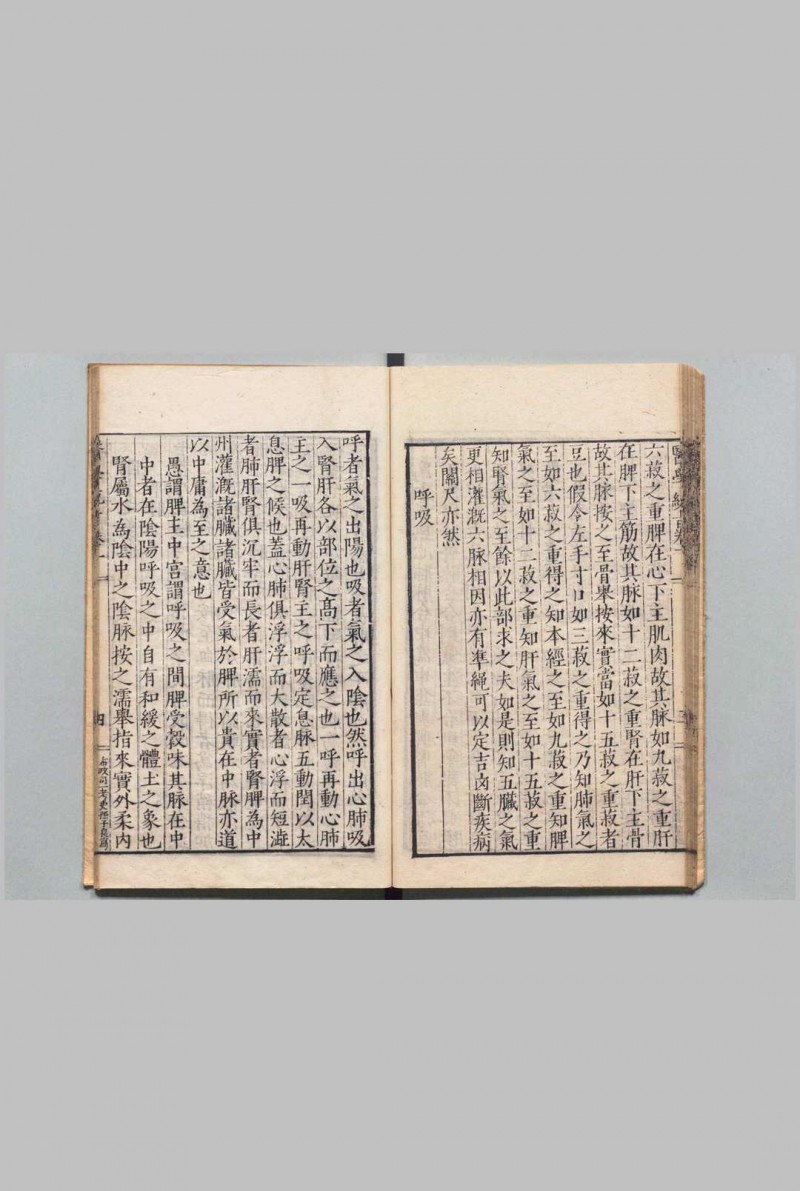 六菽之重脾在心下主肌肉故其脉如九菽之重肝
在脾下主筋故其脉如十二菽之重腎在肝下主骨
故其脉按之至骨舉按來實當如十五菽之重菽者
豆也假令左手寸口如三菽之重得之乃知肺氣之
至如六菽之重得之知本經之至如九菽之重知脾
氣之至如十二菽之重知肝氣之至如十五菽之重
知腎氣之至餘以此部求之夫如是則知五臟之氣
更相灌漑六脉相因亦有準繩可以定吉凶斷疾病
矣關尺亦然
呼吸
呼者氣之出陽也吸者氣之入陰也然呼出心肺吸
入腎肝各以部位之髙下而應之也一呼再動心肺
主之一吸再動肝腎主之呼吸定息脉五動閏以太
息脾之候也蓋心肺俱浮浮而大散者心浮而短澁
者肺肝腎俱沉牢而長者肝濡而來實者腎脾為中
州灌漑諸臟諸臟皆受氣於脾所以貴在中脉亦道
以中庸為至之意也
愚謂脾主中宮謂呼吸之間脾受榖味其脉在中
中者在陰陽呼吸之中自有和緩之體土之象也
腎屬水為陰中之陰脉按之濡舉指來實外柔内
四